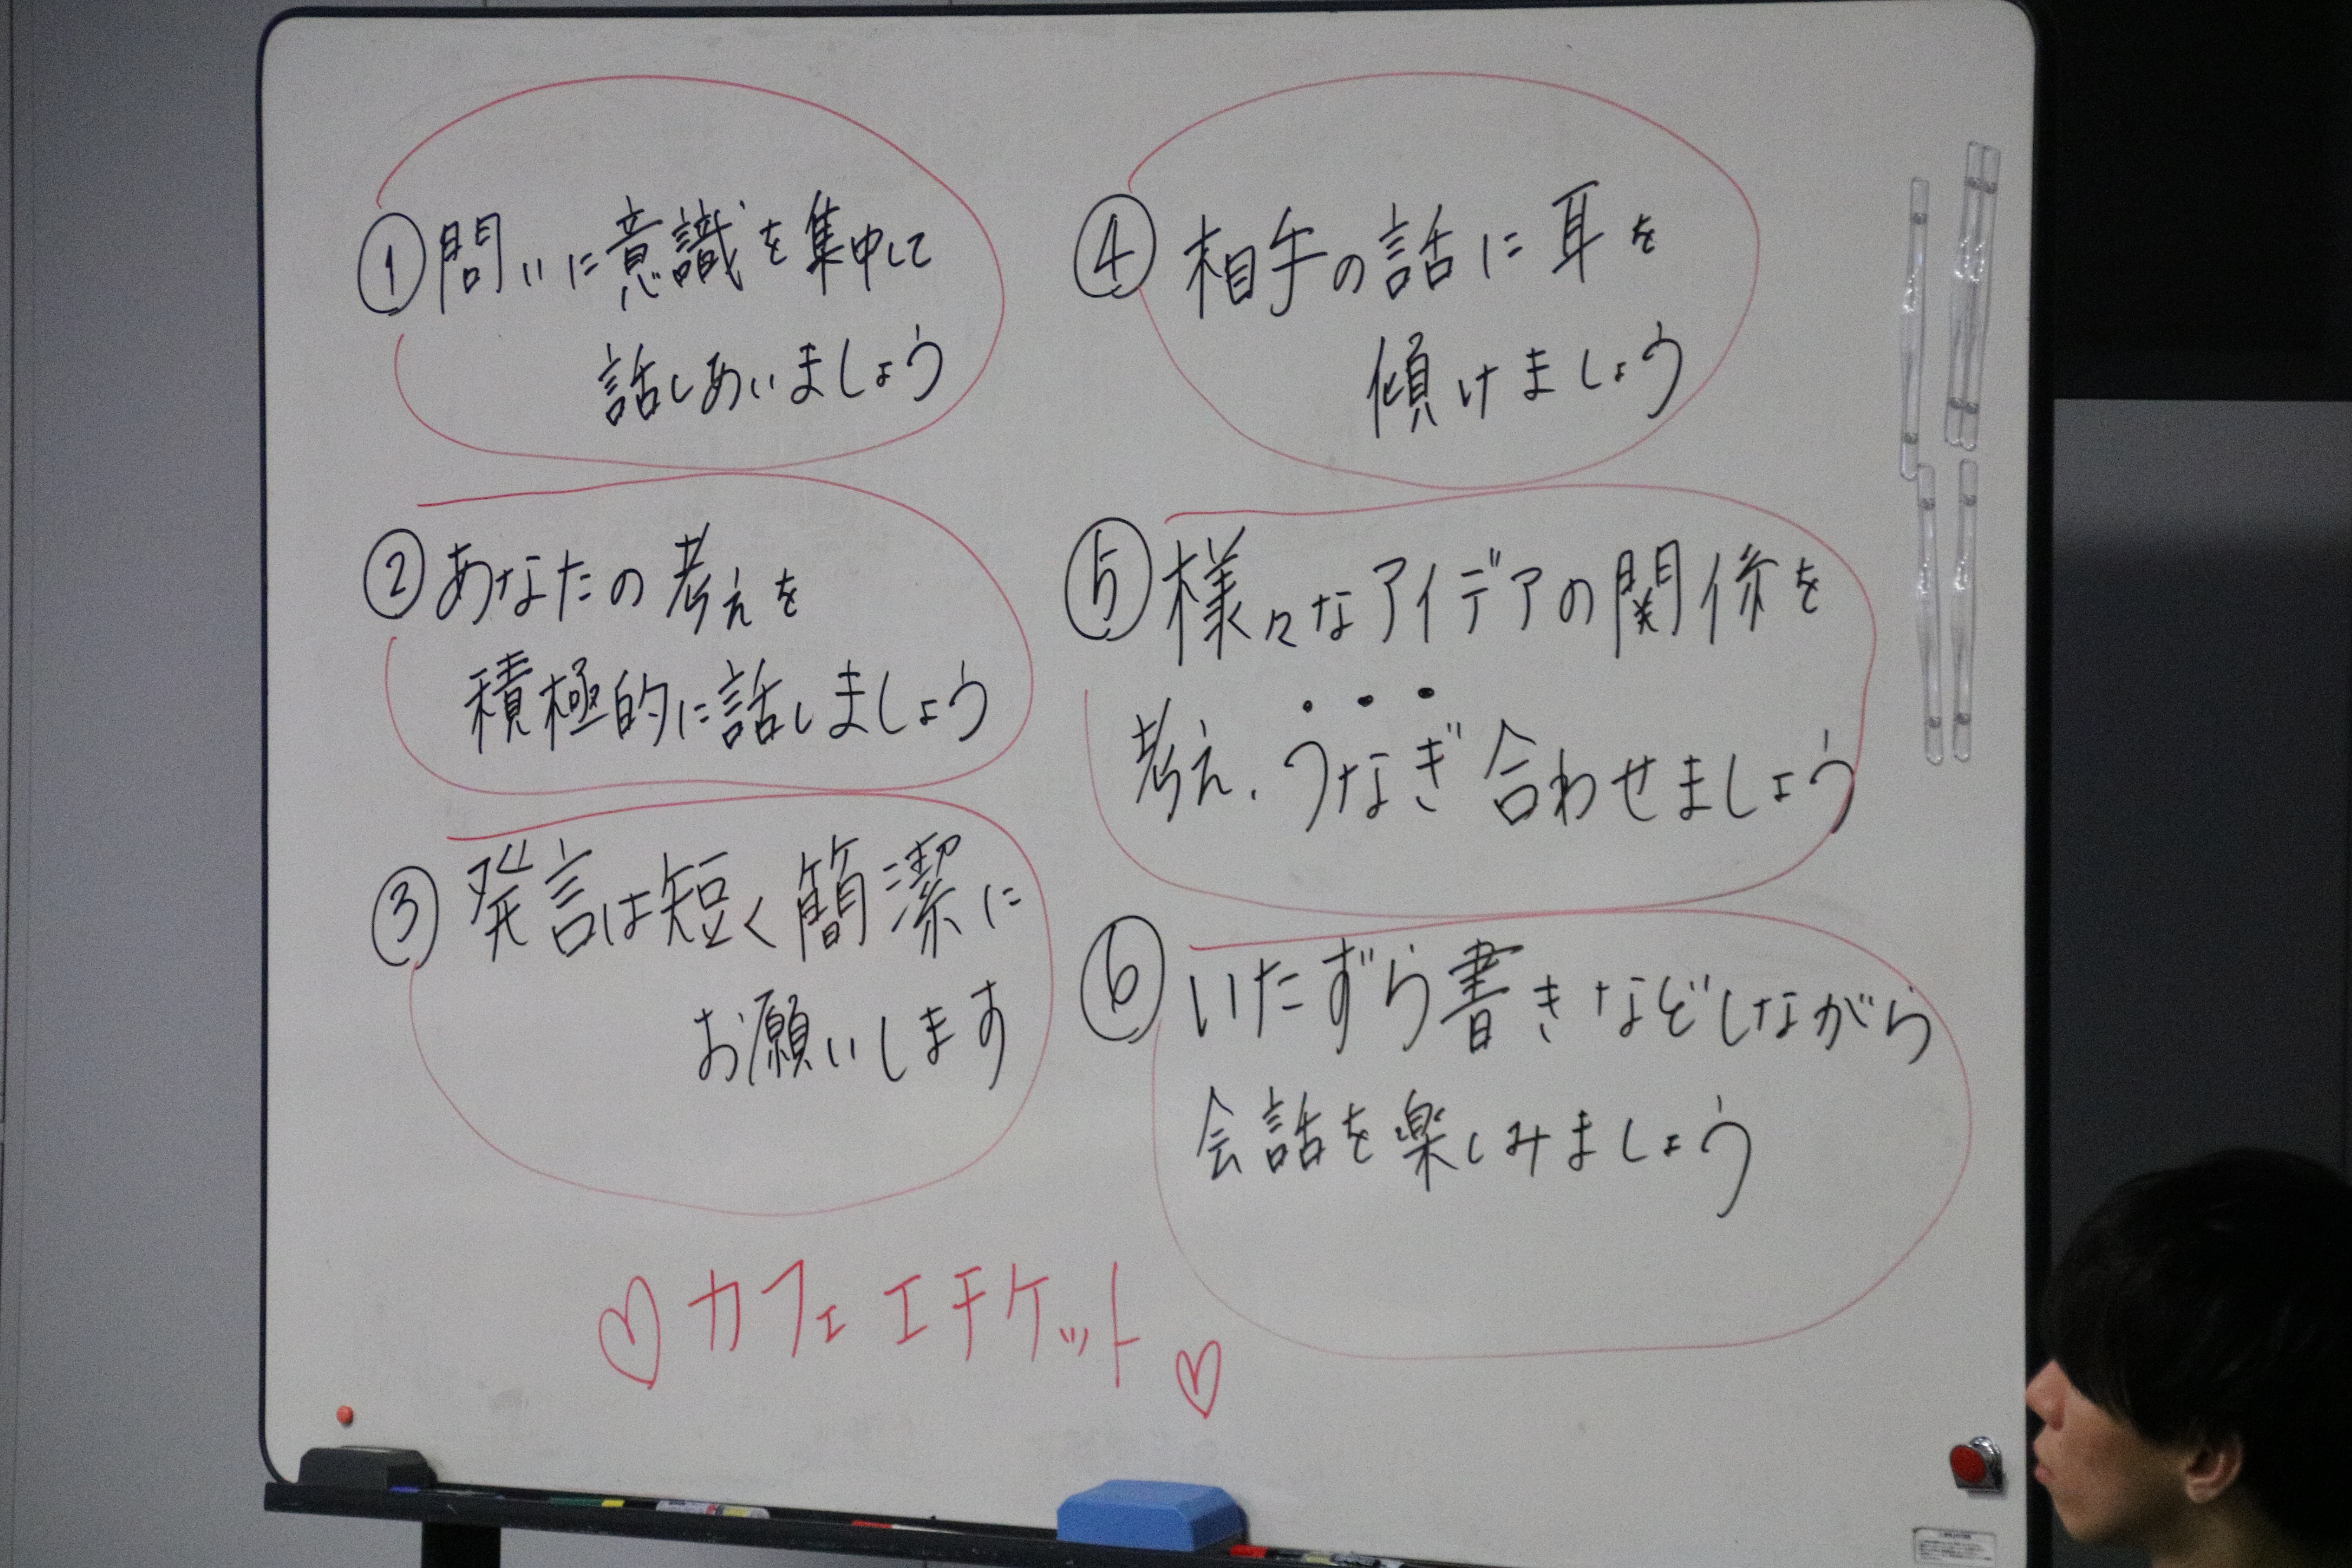 ①問いに意識を集中して
話しあいましょう
②あなたの考えを
積極的に話しましょう
③発言は短く簡潔に
お願いします
④相手の話に耳を
傾けましょう
⑤様々なアイデアの関係を
考え、うなぎ合わせましょう
⑥いたずら書きなどしながら
会話を楽しみましょう
♡カフェエチケット♡